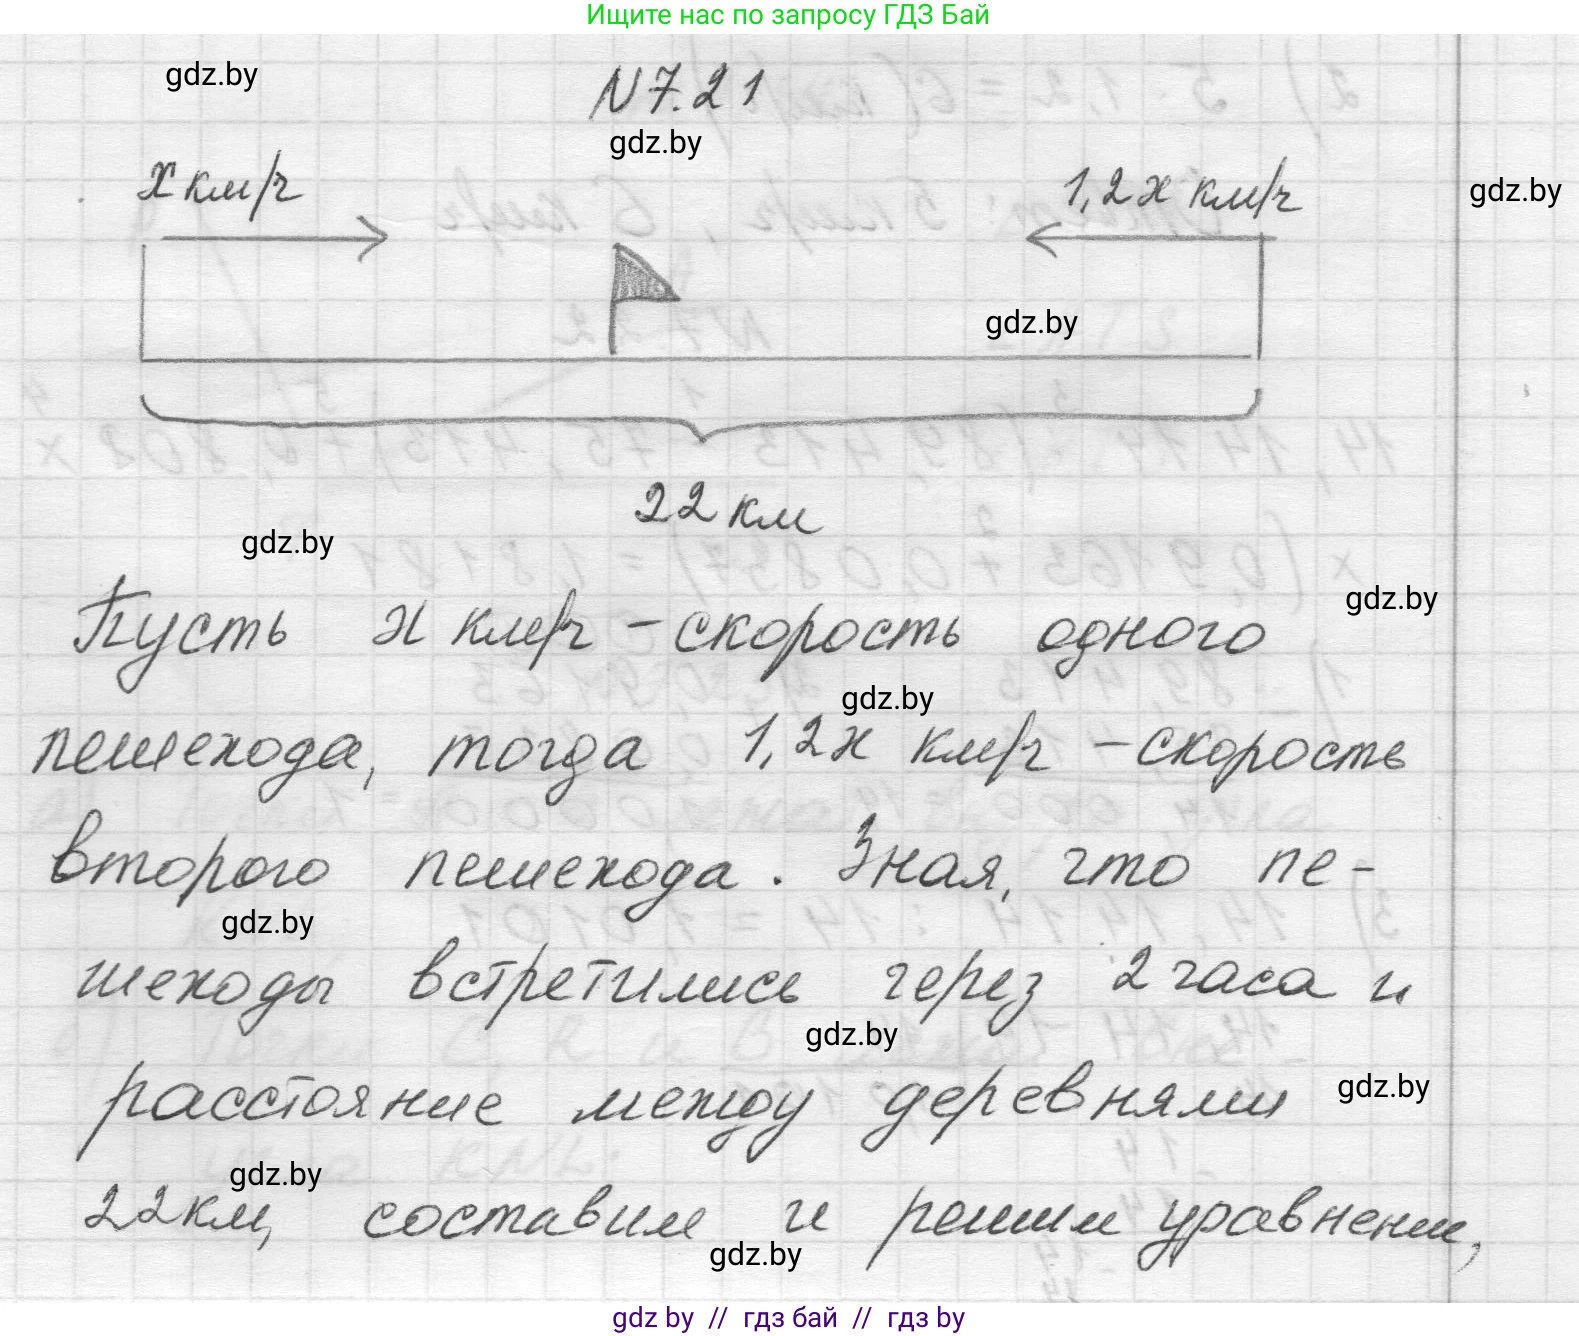 Ищите нас по запросу ГДЗ Бай
gdz.by
N7.21
gdz.by
x км/ч
1,2x км/ч
gdz.by
gdz.by
22 км
gdz.by
gdz.by
Пусть x км/ч - скорость одного
gdz.by
пешехода, тогда 1,2x км/ч - скорость
второго пешехода. Зная, что пе-
gdz.by
шеходы встретились через 2 часа и
gdz.by
расстояние между деревнями
gdz.by
gdz.by
22 км, составим и решим уравнение,
gdz.by
gdz by // гдз бай // гдз by